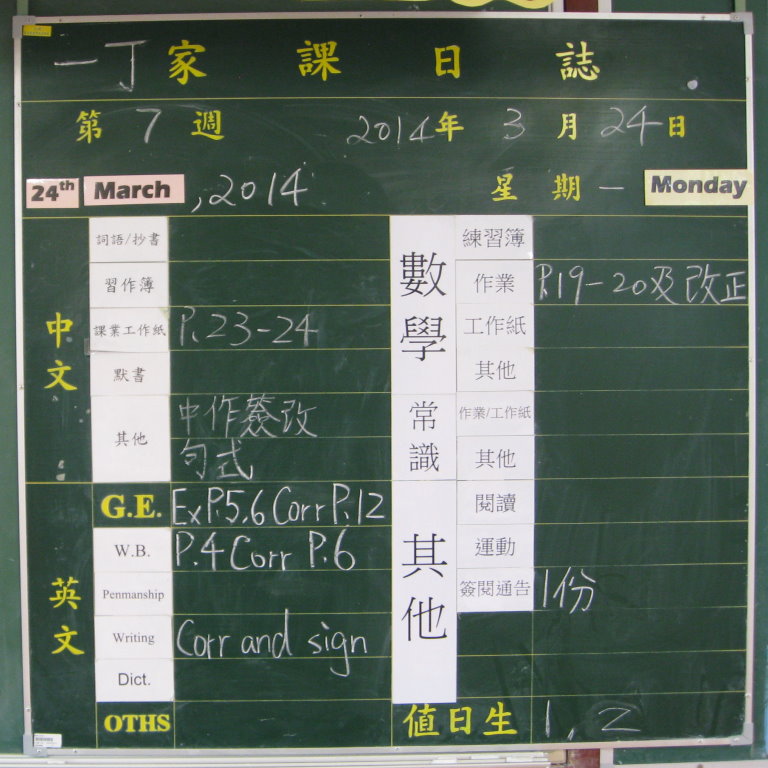 一丁家課日誌
第7週 2014年3月24日
24th March ,2014 星期一 Monday
中文
詞語/抄書
習作簿
課業工作紙 P.23-24
默書
其他 中作簽改
句式
英文
G.E. Ex P.5,6 Corr P.12
W.B. P.4 Corr P.6
Penmanship
Writing Corr and sign
Dict.
OTHS
數學
練習簿
作業 P.19-20及改正
工作紙
其他
常識
作業/工作紙
其他
其他
閱讀
運動
簽閱通告 1份
值日生 1, 2